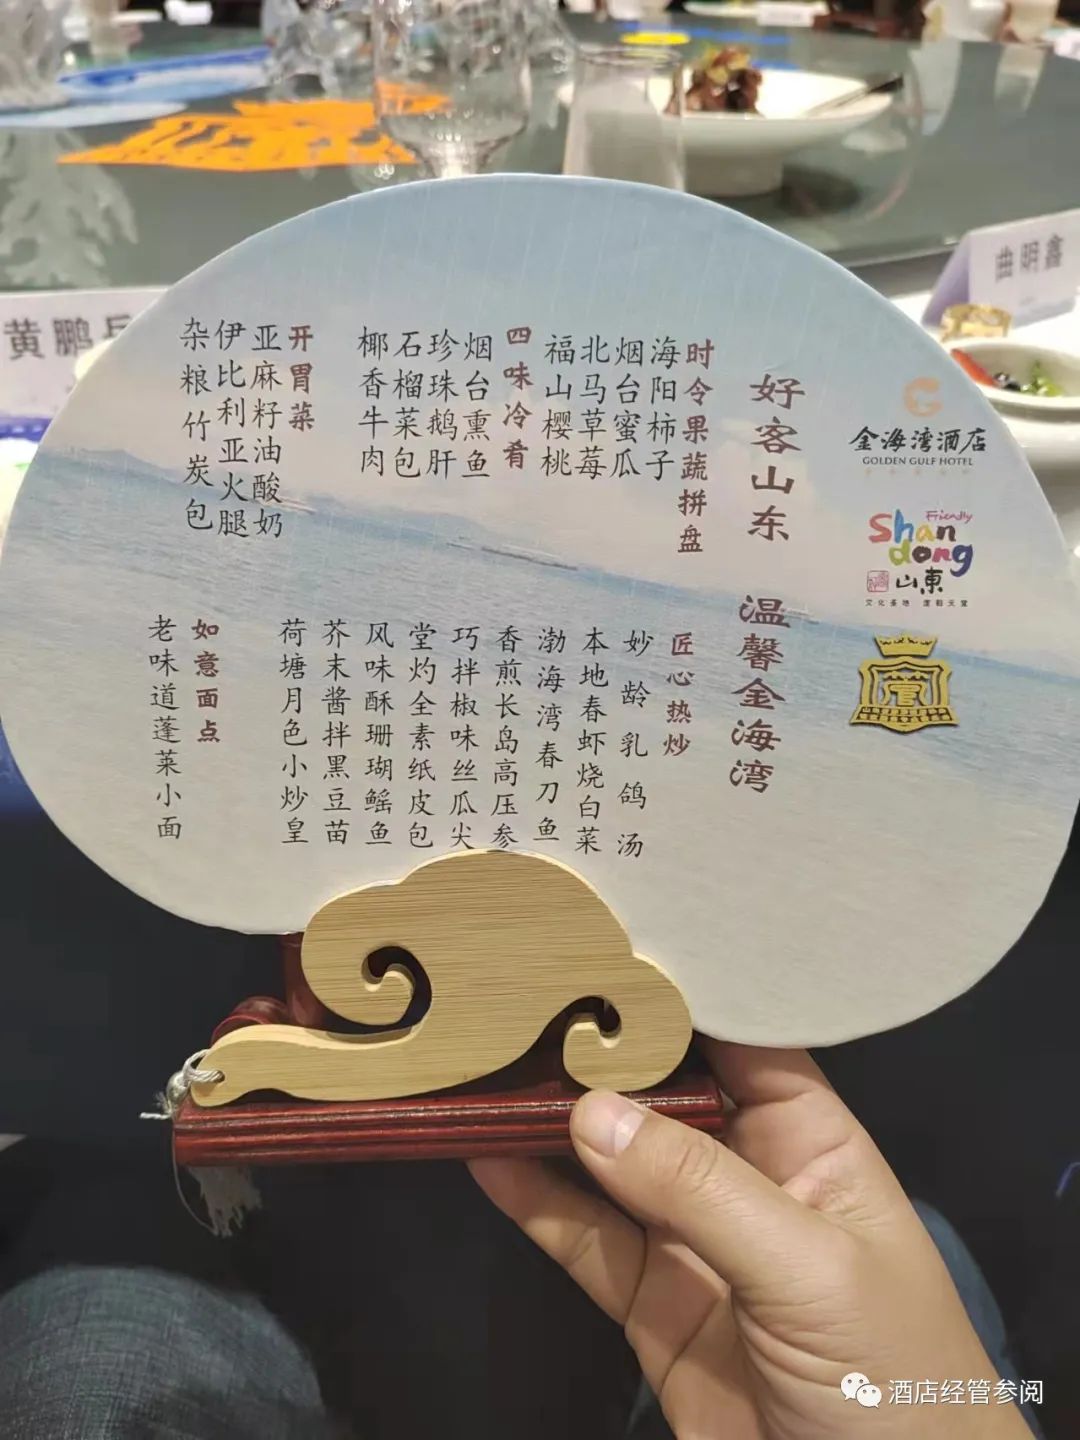 好客山东 温馨金海湾
时令果蔬拼盘
海阳柿子
烟台蜜瓜
北马草莓
福山樱桃
四味冷肴
烟台熏鱼
珍珠鹅肝
石榴菜包
椰香牛肉
开胃菜
亚麻籽油酸奶
伊比利亚火腿
杂粮竹炭包
匠心热炒
妙龄乳鸽汤
本地春虾烧白菜
渤海湾春刀鱼
香煎长岛高压参
巧拌椒味丝瓜尖
堂灼全素纸皮包
风味酥珊瑚鳐鱼
芥末酱拌黑豆苗
荷塘月色小炒皇
如意面点
老味道蓬莱小面
金海湾酒店
GOLDEN GULF HOTEL
Friendly
Shan
dong
山東
文化圣地 度假天堂
曲明鑫
黄鹏
酒店经管参阅